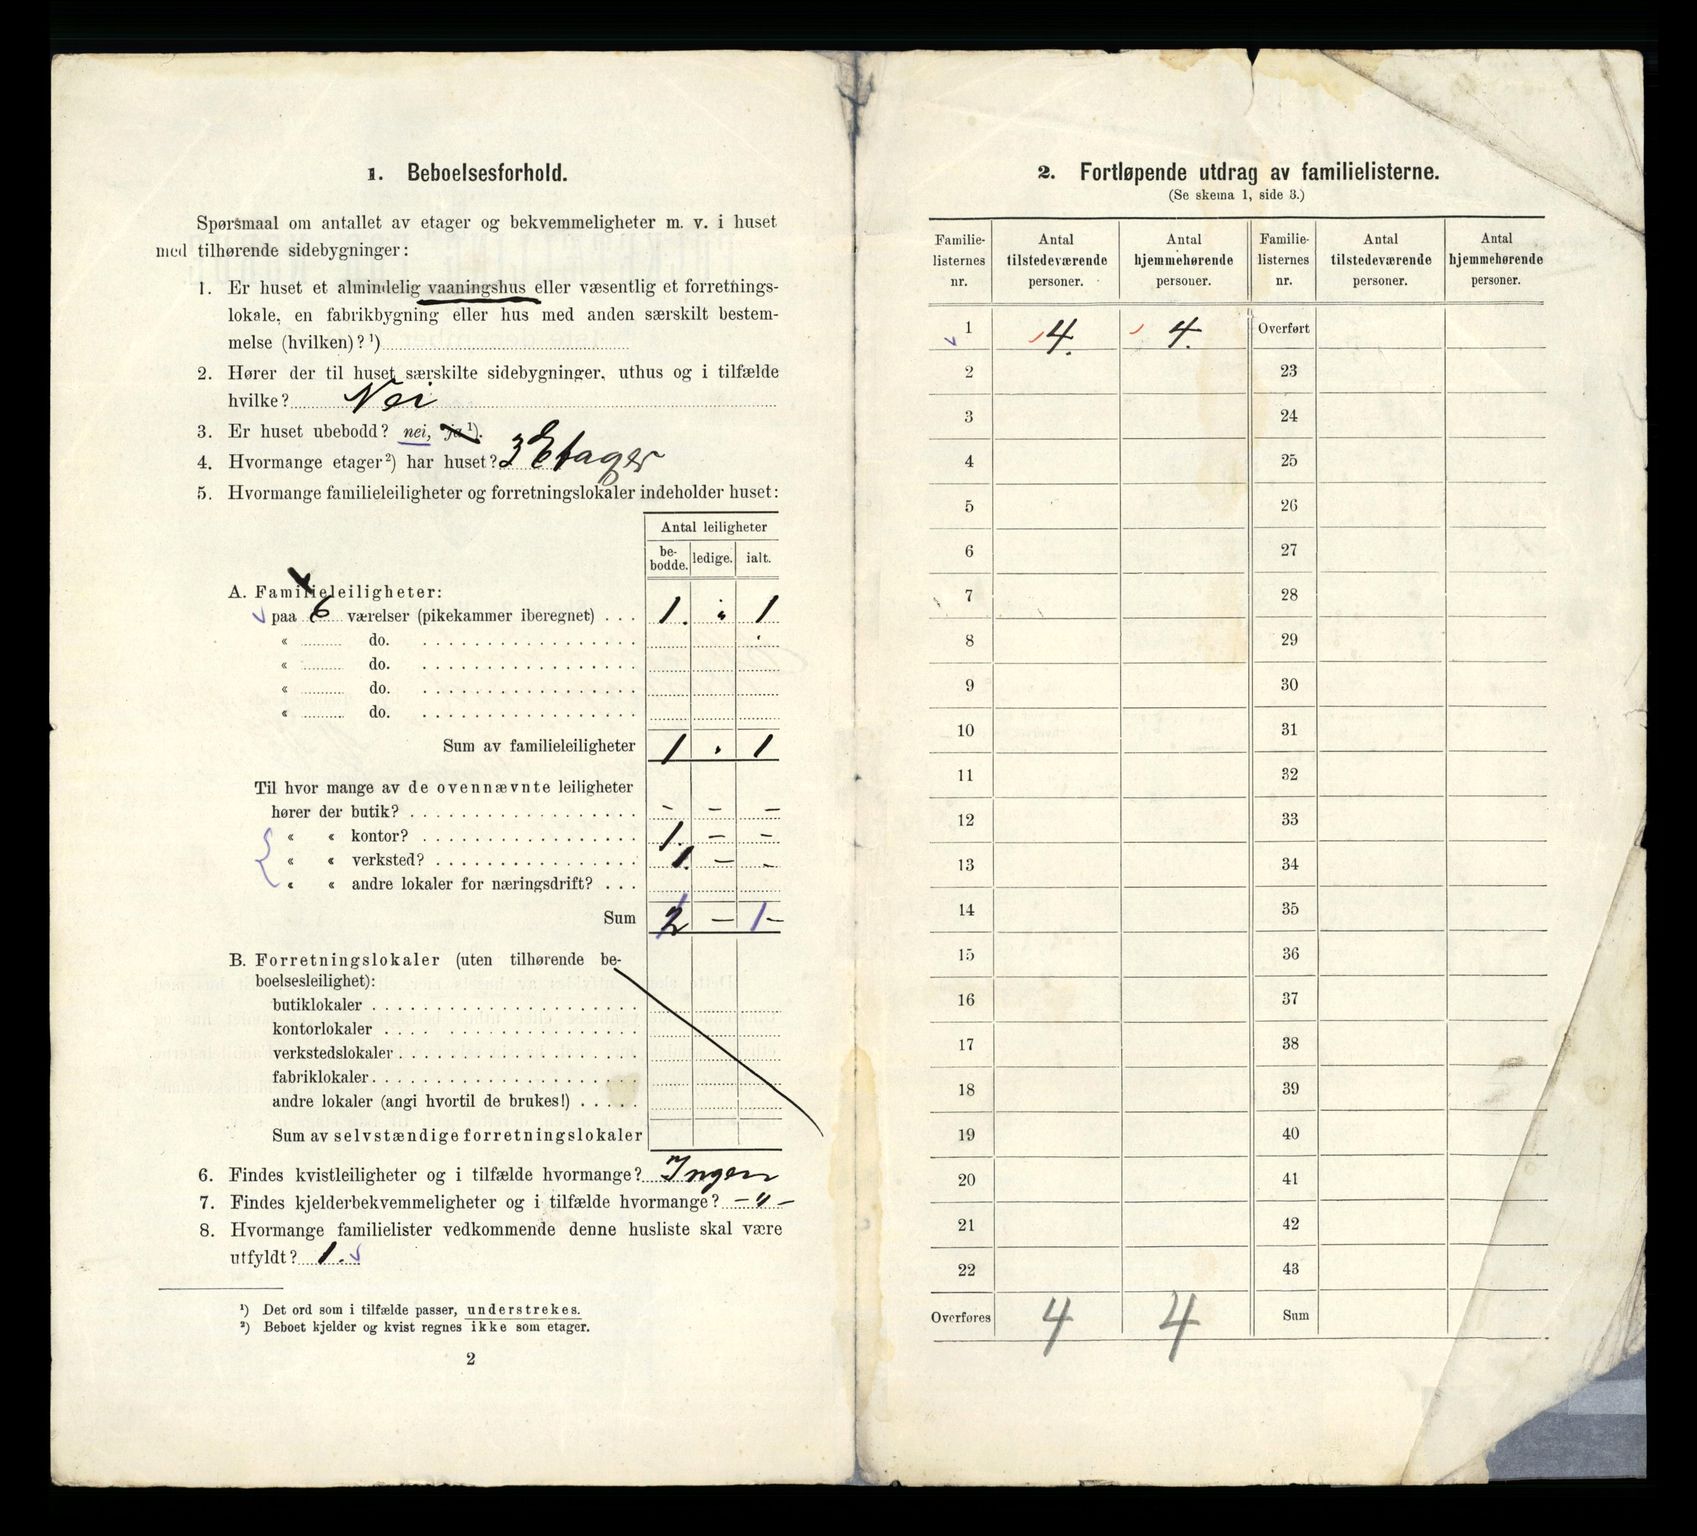 1. Beboelsesforhold.
Spørsmaal om antallet av etager og bekvemmeligheter m. v. i huset
med tilhørende sidebygninger:
1. Er huset et almindelig vaaningshus eller væsentlig et forretnings-
lokale, en fabrikbygning eller hus med anden særskilt bestem-
melse (hvilken)? ¹)
2. Hører der til huset særskilte sidebygninger, uthus og i tilfælde
hvilke? Nei
3. Er huset ubebodd? nei, ja ¹).
4. Hvormange etager ²) har huset? 3 Etager
5. Hvormange familieleiligheter og forretningslokaler indeholder huset:
Antal leiligheter
be-bodde. ledige. ialt.
A. Familieleiligheter:
paa 6 værelser (pikekammer iberegnet) . . . 1. " 1
« do.
« do.
« do.
« do.
Sum av familieleiligheter 1 . 1
Til hvor mange av de ovennævnte leiligheter
hører der butik? - - -
« « kontor? 1. - -
« « verksted? 1. - -
« « andre lokaler for næringsdrift? . . .
Sum 2 - 1 -
B. Forretningslokaler (uten tilhørende be-
boelsesleilighet):
butiklokaler
kontorlokaler
verkstedslokaler
fabriklokaler
andre lokaler (angi hvortil de brukes!)
Sum av selvstændige forretningslokaler
6. Findes kvistleiligheter og i tilfælde hvormange? Ingen
7. Findes kjelderbekvemmeligheter og i tilfælde hvormange? - " -
8. Hvormange familielister vedkommende denne husliste skal være
utfyldt? 1.
¹) Det ord som i tilfælde passer, understrekes.
²) Beboet kjelder og kvist regnes ikke som etager.
2
2. Fortløpende utdrag av familielisterne.
(Se skema 1, side 3.)
Familie- Antal Antal Familie- Antal Antal
listernes tilstedeværende hjemmehørende listernes tilstedeværende hjemmehørende
nr. personer. personer. nr. personer. personer.
1 4. 4. Overført
2 23
3 24
4 25
5 26
6 27
7 28
8 29
9 30
10 31
11 32
12 33
13 34
14 35
15 36
16 37
17 38
18 39
19 40
20 41
21 42
22 43
Overføres 4 4 Sum